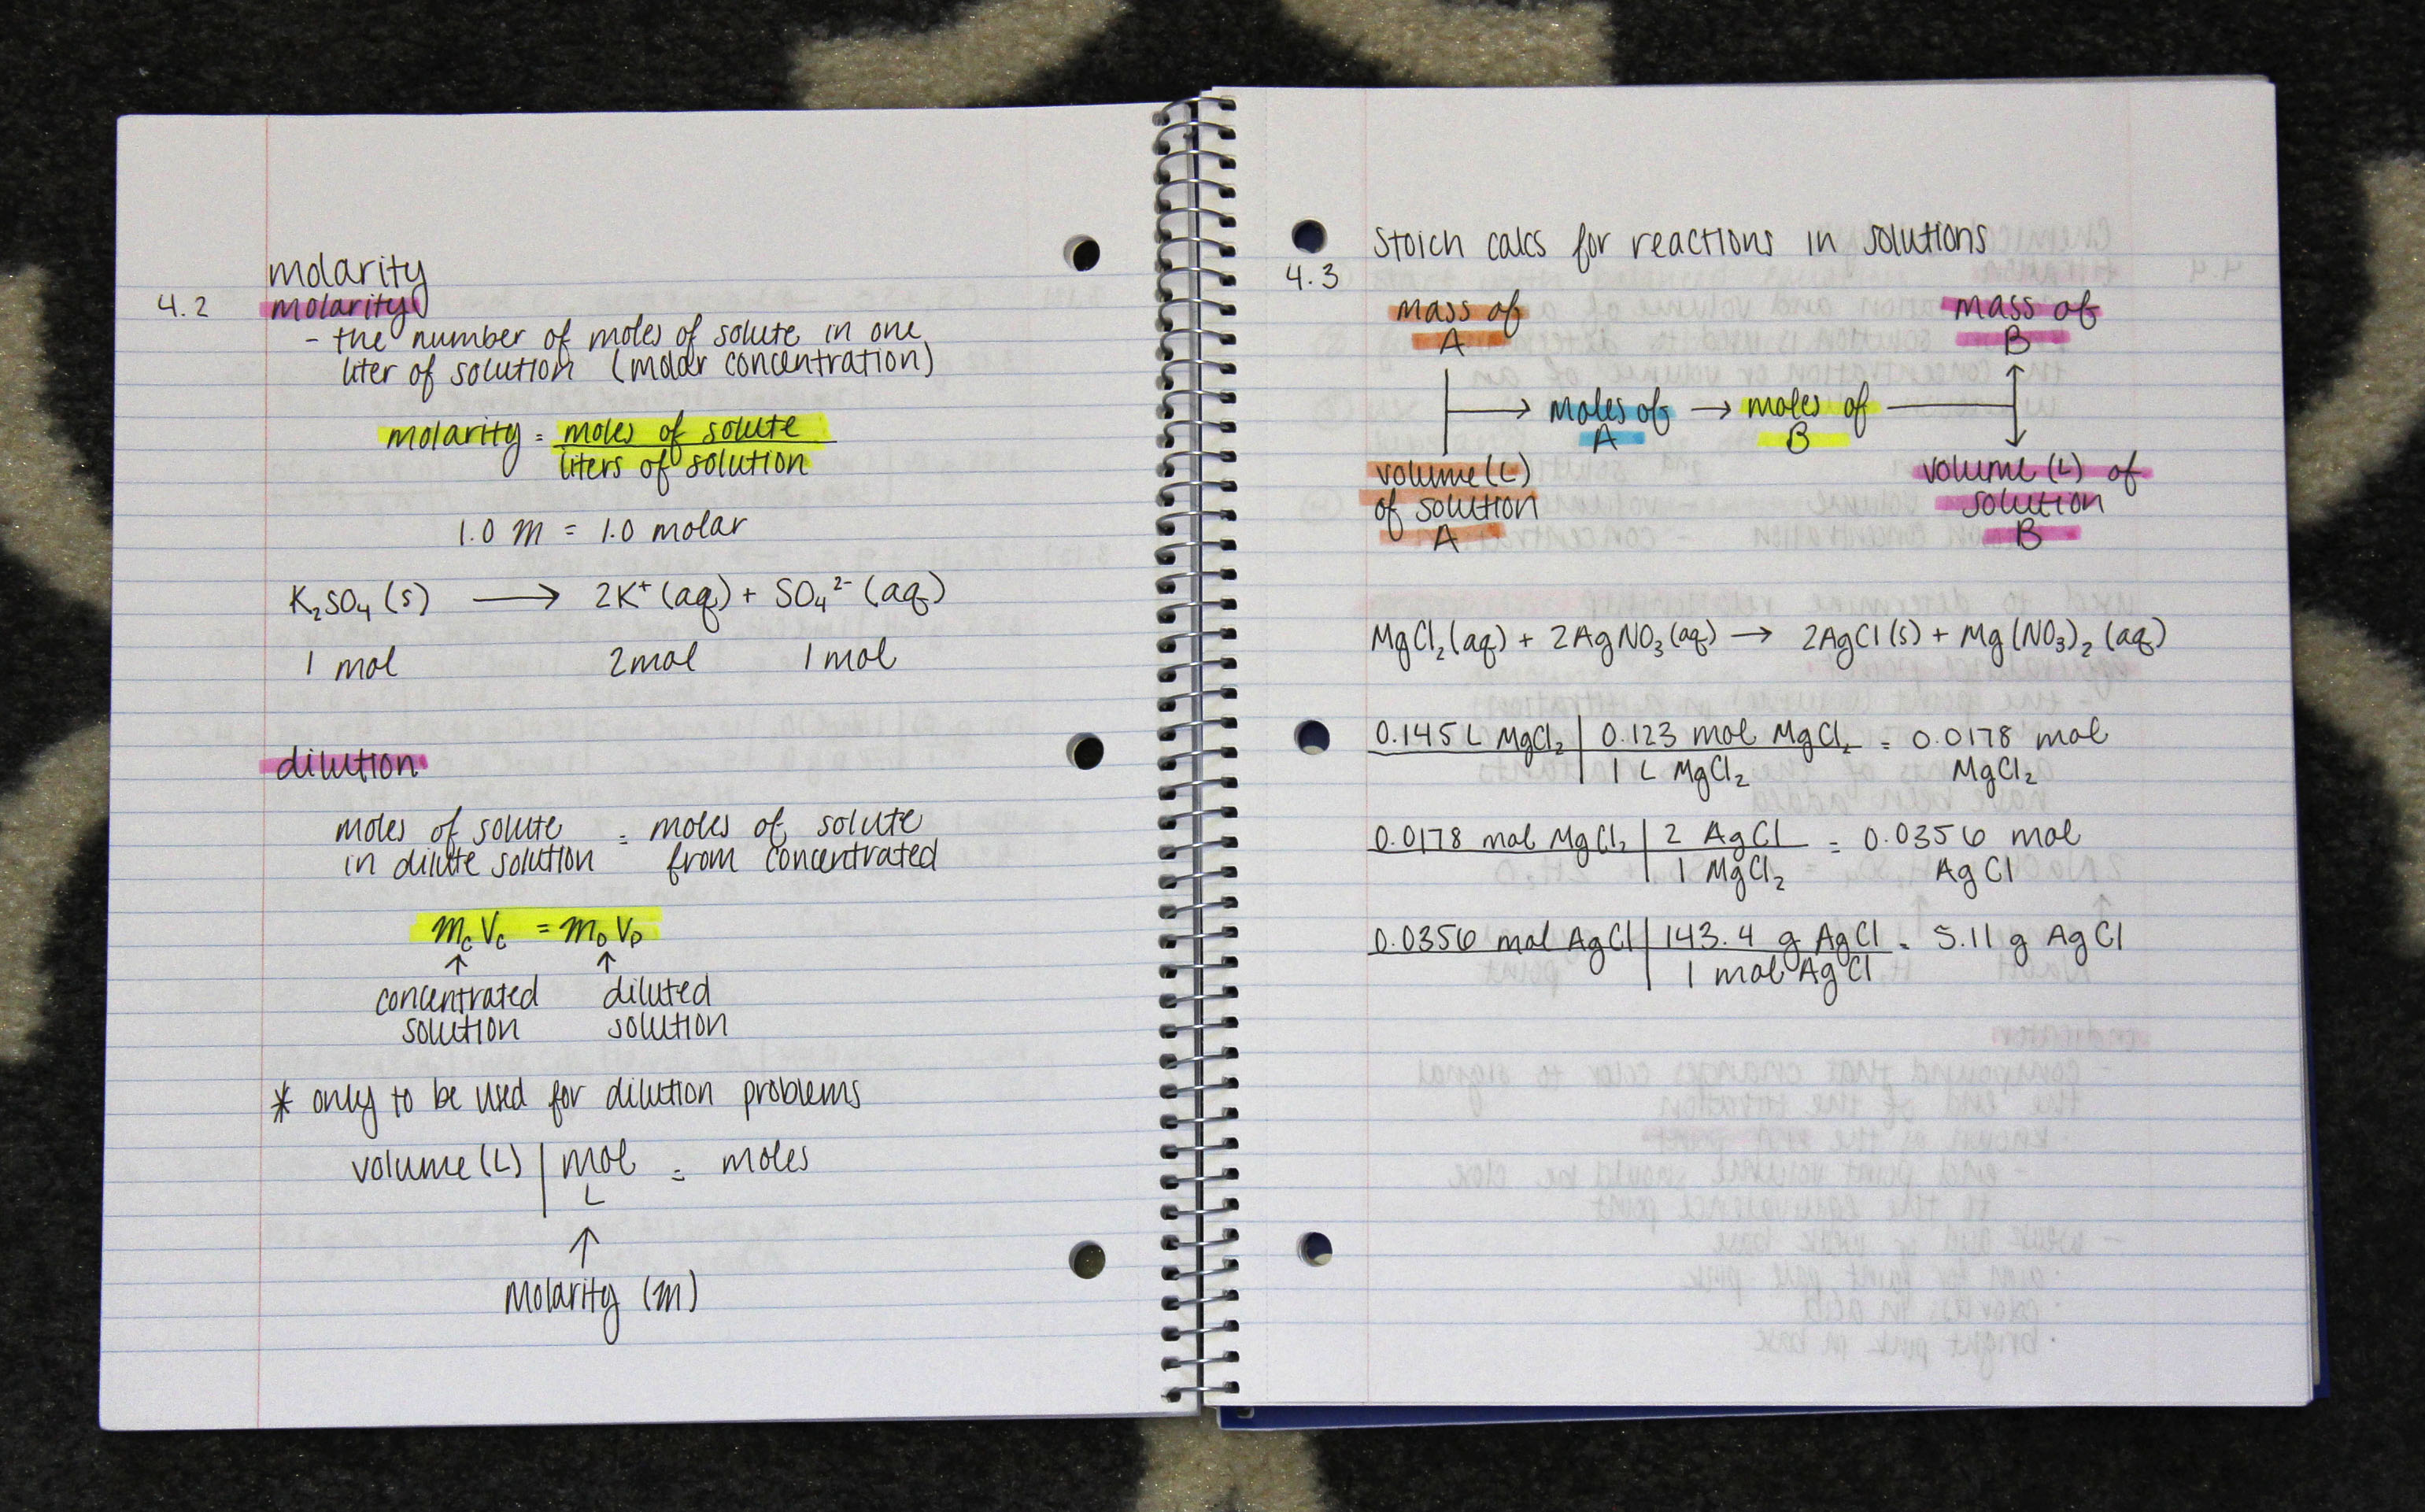 molarity
4.2 molarity
- the number of moles of solute in one
liter of solution (molar concentration)
molarity = moles of solute
liters of solution
1.0 M = 1.0 molar
K₂SO₄ (s) ⟶ 2K⁺ (aq) + SO₄²⁻ (aq)
1 mol 2 mol 1 mol
dilution
moles of solute = moles of solute
in dilute solution from concentrated
McVc = MDVD
↑ ↑
concentrated diluted
solution solution
* only to be used for dilution problems
volume (L) | mol = moles
L
↑
Molarity (M)
Stoich calcs for reactions in solutions
4.3
mass of mass of
A B
moles of → moles of
A B
volume (L) volume (L) of
of solution solution
A B
MgCl₂ (aq) + 2AgNO₃ (aq) → 2AgCl (s) + Mg(NO₃)₂ (aq)
0.145 L MgCl₂ | 0.123 mol MgCl₂ = 0.0178 mol
1 L MgCl₂ MgCl₂
0.0178 mol MgCl₂ | 2 AgCl = 0.0356 mol
1 MgCl₂ AgCl
0.0356 mol AgCl | 143.4 g AgCl = 5.11 g AgCl
1 mol AgCl